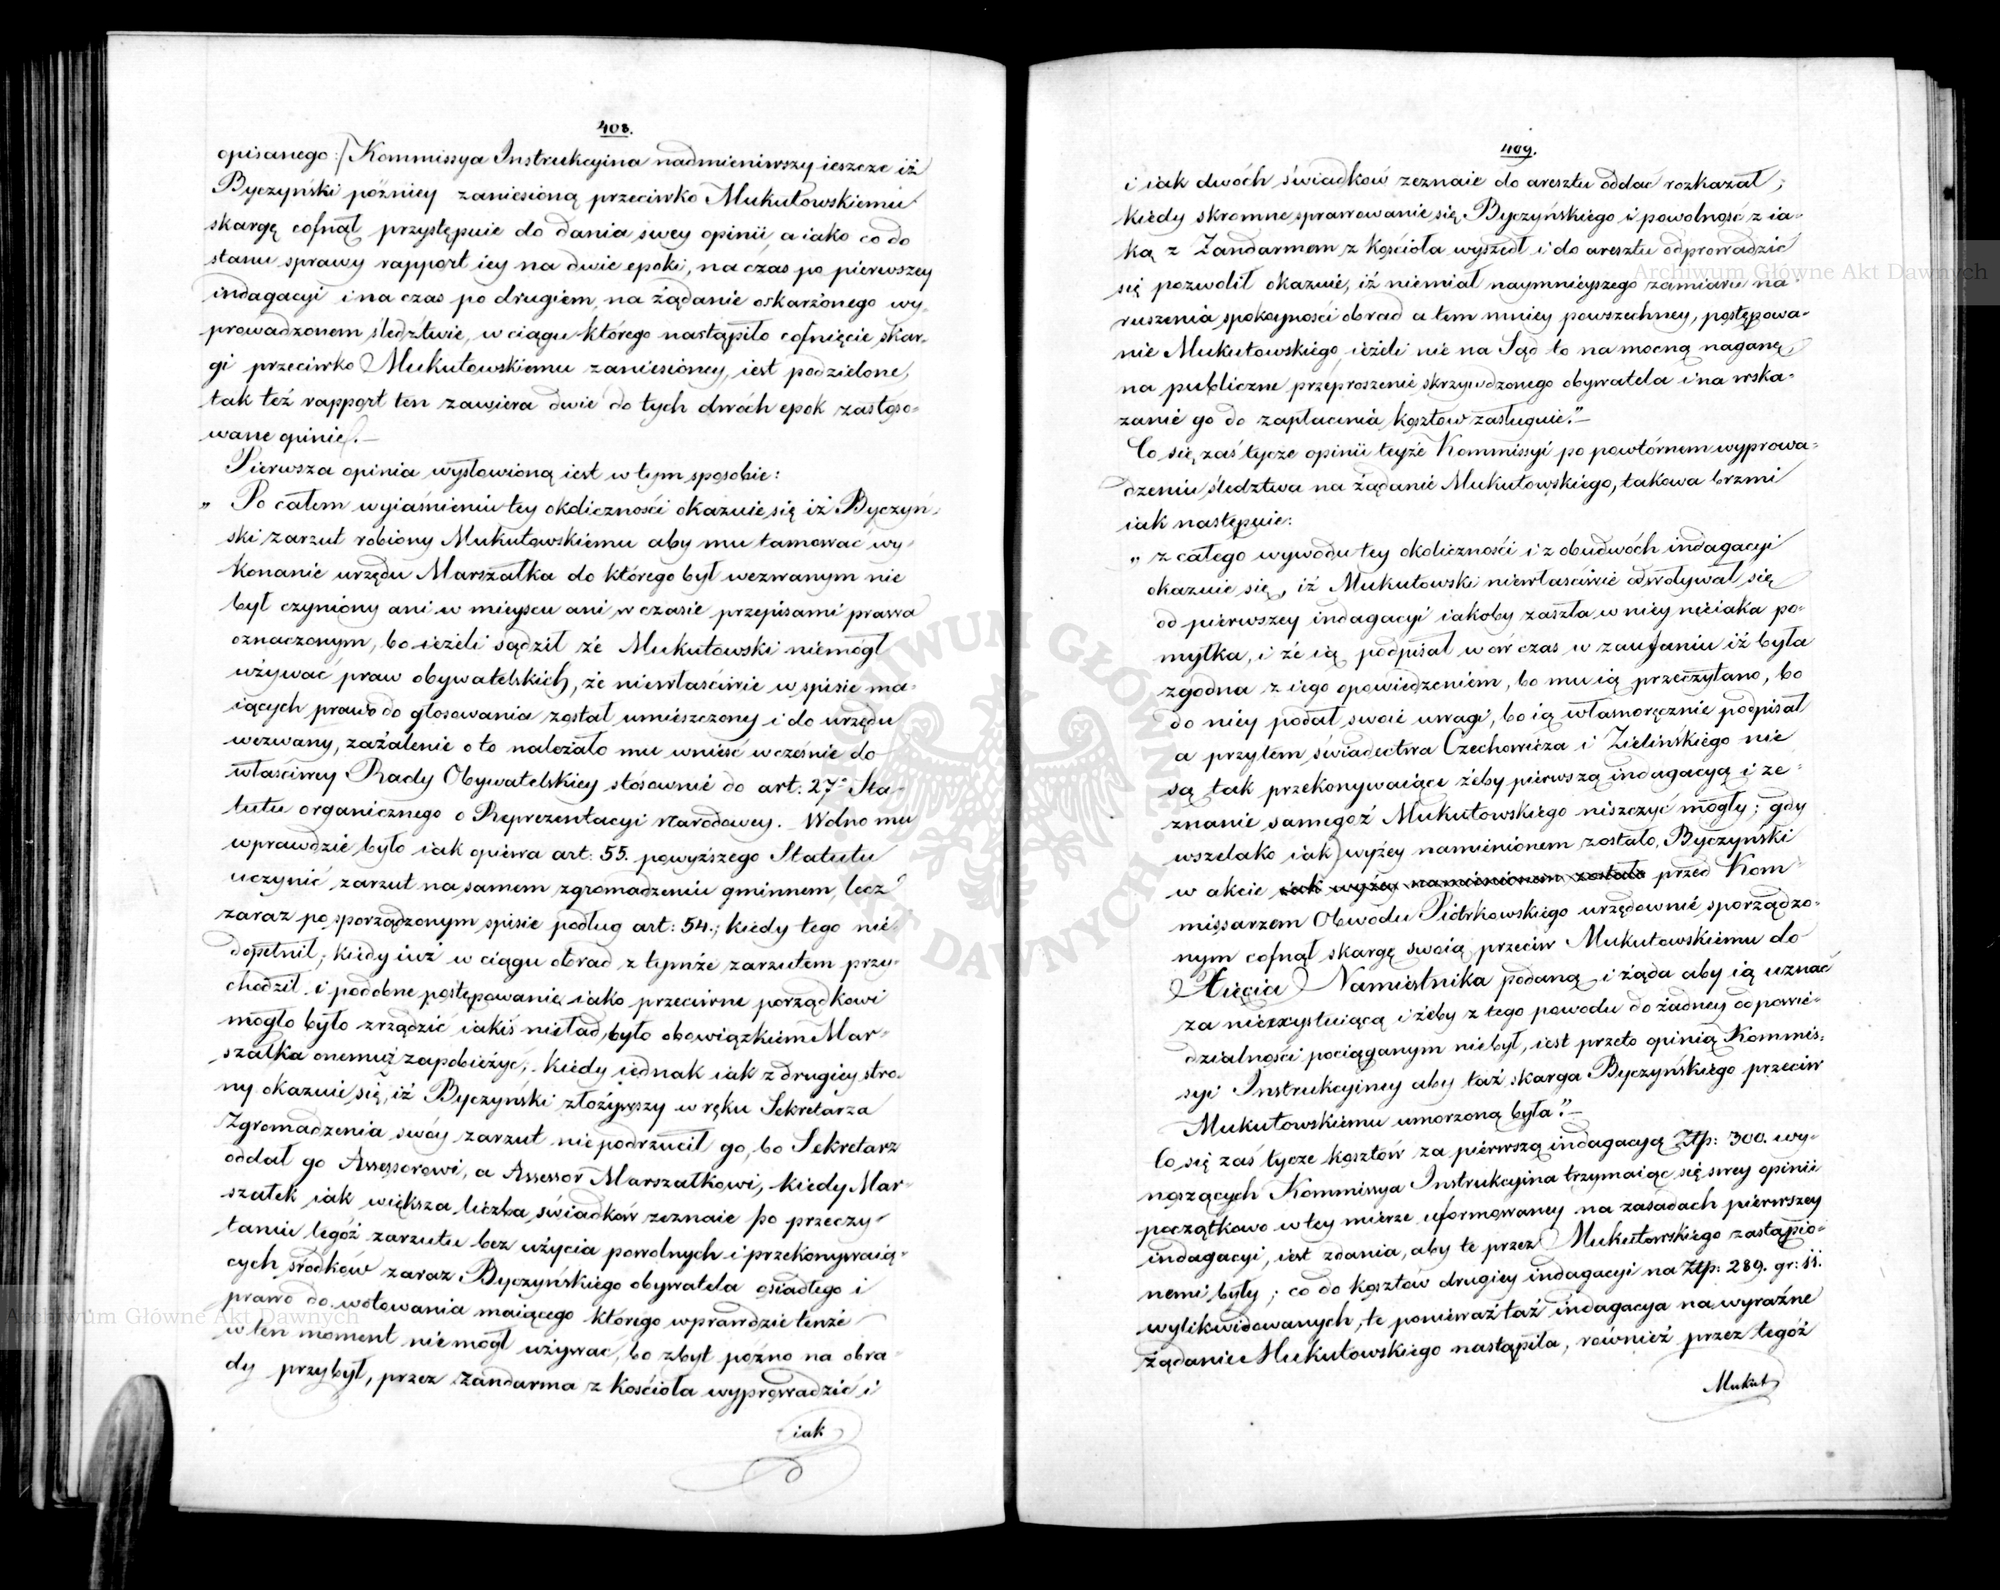 408.
opisanego:/ Kommissya Instrukcyina nadmieniwszy ieszcze iż
Byczyński późniey zaniesioną przeciwko Mukułowskiemu
skargę cofnął przystępuie do dania swey opinii, a iako co do
stanu sprawy rapport iey na dwie epoki, na czas po pierwszey
indagacyi i na czas po drugiem, na żądanie oskarżonego wy-
prowadzonem śledztwie, w ciągu którego nastąpiło cofnięcie skar-
gi przeciwko Mukułowskiemu zaniesioney, iest podzielone,
tak też rapport ten zawiera dwie do tych dwóch epok zastoso-
wane opinie.—
Pierwsza opinia wysłowioną iest w tym sposobie:
„ Po całem wyiaśnieniu tey okoliczności okazuie się iż Byczyń-
ski zarzut robiony Mukułowskiemu aby mu tamować wy-
konanie urzędu Marszałka do którego był wezwanym nie
był czyniony ani w mieyscu ani w czasie przepisami prawa
oznaczonym, bo ieżeli sądził że Mukułowski niemógł
używać praw obywatelskich, że niewłaściwie w spisie ma-
iących prawo do głosowania został umieszczony i do urzędu
wezwany, zażalenie o to należało mu wnieść wcześnie do
właściwey Rady Obywatelskiey stósownie do art. 27. Sta-
tutu organicznego o Reprezentacyi Narodowey. Wolno mu
wprawdzie było iak opiewa art: 55. powyższego Statutu
uczynić zarzut na samem zgromadzeniu gminnem, lecz
zaraz po sporządzonym spisie podług art: 54.; kiedy tego nie-
dopełnił; kiedy iuż w ciągu obrad z tymże zarzutem przy-
chodził i podobne postępowanie iako przeciwne porządkowi
mogło było zrządzić iakiś nieład, było obowiązkiem Mar-
szałka onemuż zapobieżyć; kiedy iednak iak z drugiey stro-
ny okazuie się, iż Byczyński złożywszy w ręku Sekretarza
Zgromadzenia swóy zarzut niepodrzucił go, bo Sekretarz
oddał go Assessorowi, a Assessor Marszałkowi, kiedy Mar-
szałek iak większa liczba świadków zeznaie po przeczy-
taniu tegóż zarzutu bez użycia powolnych i przekonywaią-
cych środków zaraz Byczyńskiego obywatela osiadłego i
prawo do wotowania maiącego którego wprawdzie tenże
w ten moment niemógł używać, bo zbyt poźno na obra-
dy przybył, przez Zandarma z kościoła wyprowadzić i
iak
409.
i iak dwóch świadków zeznaie do aresztu oddać rozkazał;
kiedy skromne sprawowanie się Byczyńskiego i powolność z ia-
ką z Zandarmem z kościoła wyszedł i do aresztu odprowadzić
się pozwolił okazuie, iż niemiał naymnieyszego zamiaru na-
ruszenia spokoyności obrad a tem mniey powszechney, postępowa-
nie Mukułowskiego, ieżeli nie na Sąd to na mocną naganę,
na publiczne przeproszenie skrzywdzonego obywatela i na wska-
zanie go do zapłacenia kosztów zasługuie."—
Co się zaś tycze opinii teyże Kommissyi po powtórnem wyprowa-
dzeniu śledztwa na żądanie Mukułowskiego, takowa brzmi
iak następuie:
„ z całego wywodu tey okoliczności i z obudwóch indagacyi
okazuie się, iż Mukułowski niewłaściwie odwoływał się
od pierwszey indagacyi iakoby zaszła w niey nieiaka po-
myłka, i że ią podpisał wówczas w zaufaniu iż była
zgodna z iego opowiedzeniem, bo mu ią przeczytano, bo
do niey podał swoie uwagi, bo ią własnoręcznie podpisał
a przytem świadectwa Czechowicza i Zielińskiego nie
są tak przekonywaiące żeby pierwszą indagacyą i ze-
znanie samegóż Mukułowskiego niszczyć mogły; gdy
wszelako iak wyżey namienionem zostało, Byczyński
w akcie iak wyżey namienionem zostało przed Kom-
missarzem Obwodu Piotrkowskiego urzędownie sporządzo-
nym cofnął skargę swoią przeciw Mukułowskiemu do
Xięcia Namiestnika podaną i żąda aby ią uznać
za nieexystuiącą i żeby z tego powodu do żadney odpowie-
dzialności pociąganym niebył, iest przeto opinią Kommis-
syi Instrukcyiney aby taż skarga Byczyńskiego przeciw
Mukułowskiemu umorzoną była."—
Co się zaś tycze kosztów za pierwszą indagacyą Złp: 300. wy-
noszących Kommissya Instrukcyina trzymaiąc się swey opinii
początkowo w tey mierze uformowaney na zasadach pierwszey
indagacyi, iest zdania, aby te przez Mukułowskiego zastąpio-
nemi były; co do kosztów drugiey indagacyi na Złp: 289. gr: 11.
wylikwidowanych, te ponieważ taż indagacya na wyraźne
żądanie Mukułowskiego nastąpiła, również przez tegóż
Mukuł
Archiwum Główne Akt Dawnych
Archiwum Główne Akt Dawnych
ARCHIWUM GŁÓWNE AKT DAWNYCH